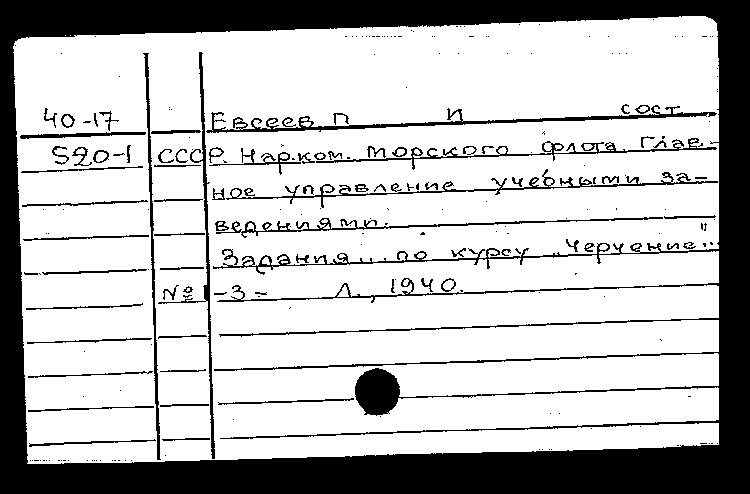 40-17 Евсеев, П И сост.
520-1 СССР. Нар.ком. морского флота. Глав-
ное управление учебными за-
ведениями.
Задания... по курсу „Черчение"...
№ 1-3- Л., 1940.